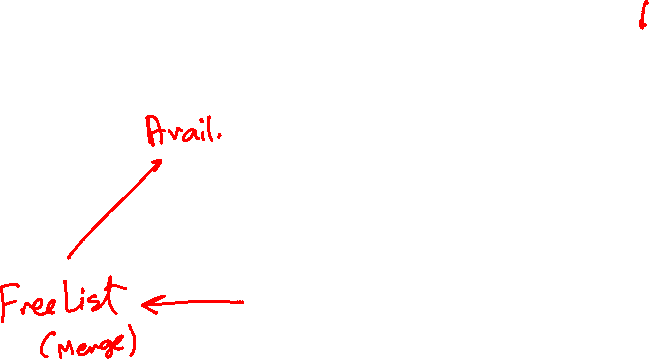 Avail.
Free List
(Merge)